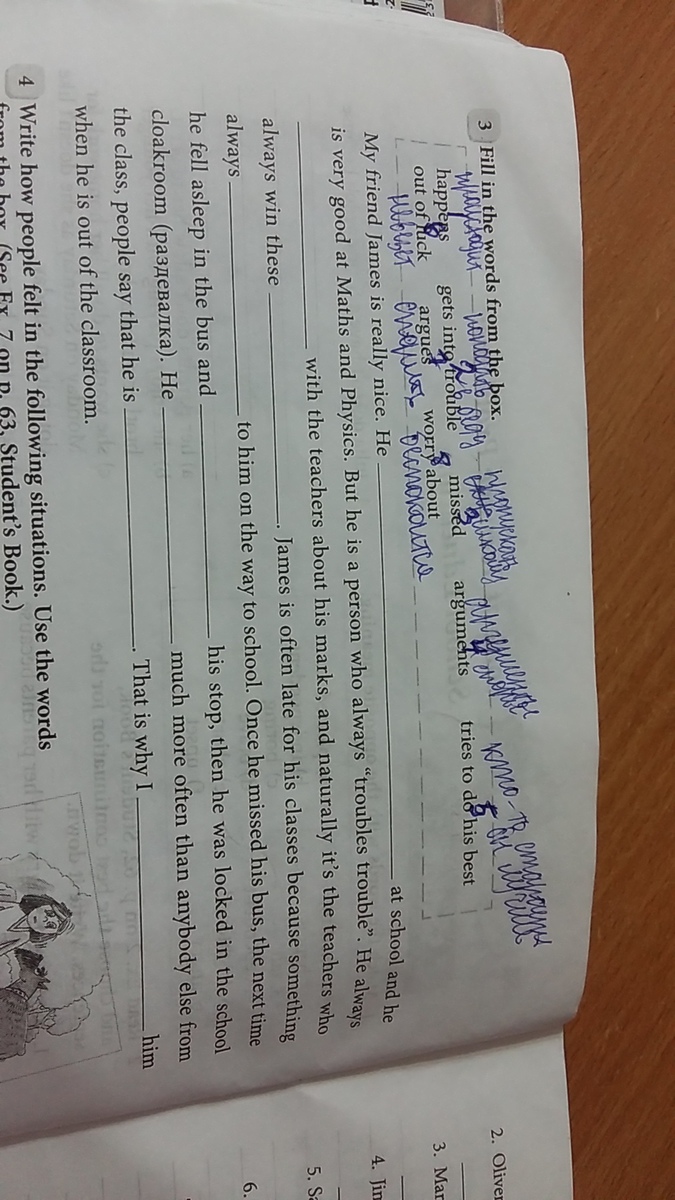 3 Fill in the words from the box.
попадать в беду пропускать аргументы
happens gets into trouble missed arguments tries to do his best
out of luck argues worry about
спорить беспокоиться
My friend James is really nice. He ____ at school and he
is very good at Maths and Physics. But he is a person who always “troubles trouble”. He always
____ with the teachers about his marks, and naturally it’s the teachers who
always win these ____. James is often late for his classes because something
always ____ to him on the way to school. Once he missed his bus, the next time
he fell asleep in the bus and ____ his stop, then he was locked in the school
cloakroom (раздевалка). He ____ much more often than anybody else from
the class, people say that he is ____. That is why I ____ him
when he is out of the classroom.
4 Write how people felt in the following situations. Use the words
from the box. (See Ex. 7 on p. 63, Student’s Book.)
2. Oliver
3. Mar
4. Jin
5. Sa
6.